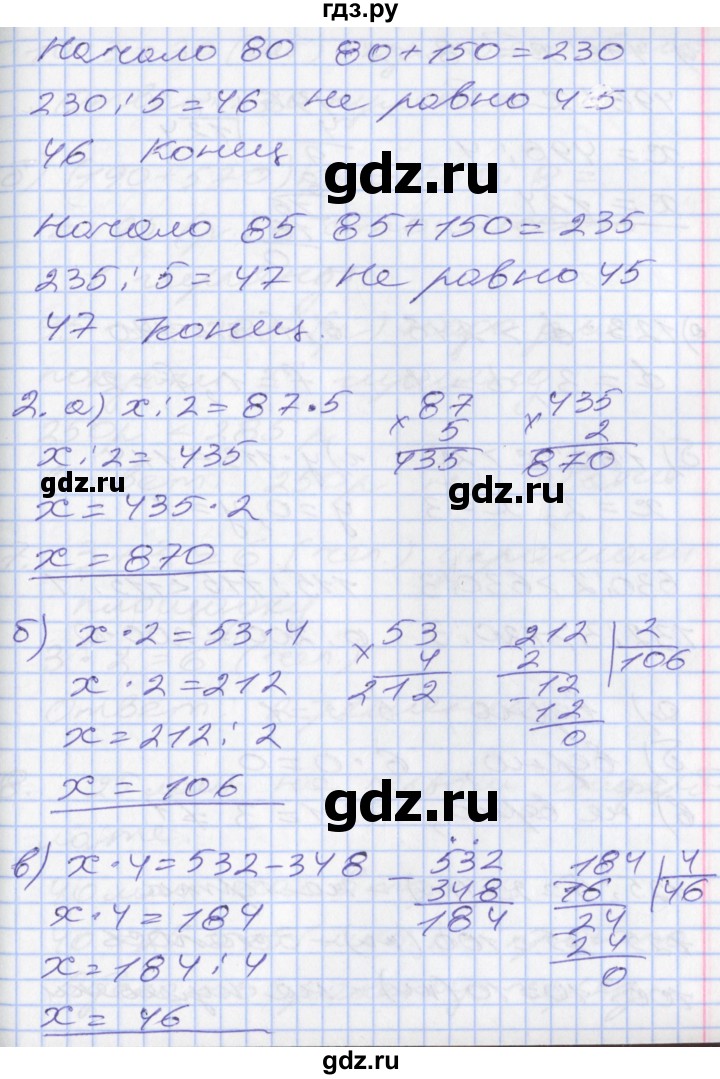 гдз.ру
Начало 80 80+150=230
230:5=46 Не равно 45
46 Конец
gdz.ru
Начало 85 85+150=235
235:5=47 Не равно 45
47 Конец.
2. а) x:2=87·5
x:2=435
x=435·2
x=870
× 87
5
435
× 435
2
870
gdz.ru
gdz.ru
б) x·2=53·4
x·2=212
x=212:2
x=106
× 53
4
212
-212 | 2
2 | 106
-12
12
0
gdz.ru
в) x·4=532-348
x·4=184
x=184:4
x=46
- 532
348
184
184 | 4
16 | 46
24
24
0
gdz.ru